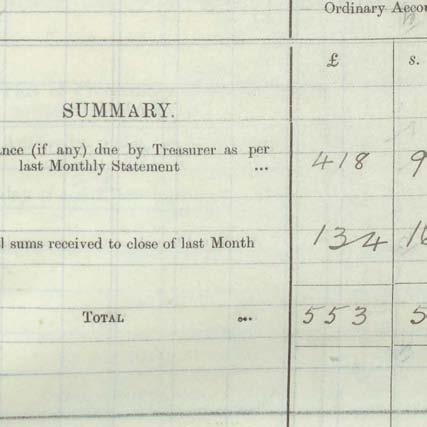 Ordinary Accou
£ s.
SUMMARY.
nce (if any) due by Treasurer as per
last Monthly Statement ... 418 9
l sums received to close of last Month 134 16
TOTAL ... 553 5